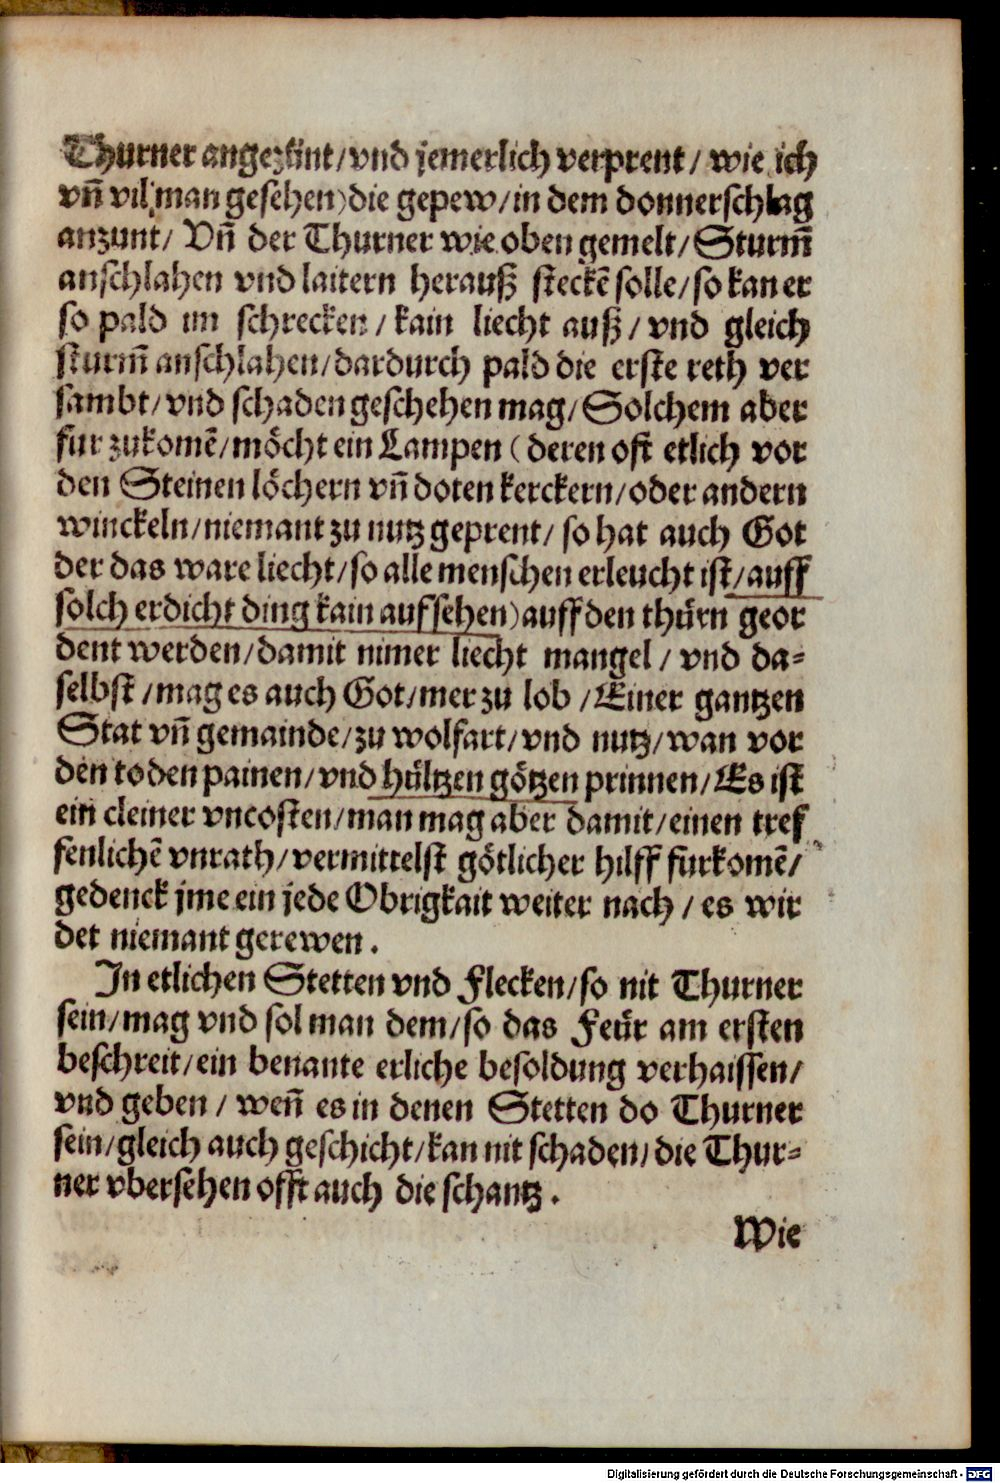 Thurner angezünt/vnd jemerlich verprent/ wie ich
vñ vil man gesehen)die gepew/in dem donnerschlag
anzunt/ Vñ der Thurner wie oben gemelt/Sturm̃
anschlahen vnd laitern herauß steckẽ solle/so kan er
so pald im schrecken/ kain liecht auß/ vnd gleich
sturm̃ anschlahen/dardurch pald die erste reth ver
sambt/vnd schaden geschehen mag/Solchem aber
fur zukomẽ/möcht ein Lampen (deren oft etlich vor
den Steinen löchern vñ doten kerckern/oder andern
winckeln/niemant zu nutz geprent/ so hat auch Got
der das ware liecht/so alle menschen erleucht ist/auff
solch erdicht ding kain aufsehen)auff den thürn geor
dent werden/damit nimer liecht mangel/ vnd da⸗
selbst/mag es auch Got/mer zu lob/Einer gantzen
Stat vñ gemainde/zu wolfart/vnd nutz/wan vor
den toden painen/vnd hültzen götzen prinnen/Es ist
ein cleiner vncosten/man mag aber damit/einen tref
fenlichẽ vnrath/vermittelst götlicher hilff furkomẽ/
gedenck jme ein jede Obrigkait weiter nach/ es wir
det niemant gerewen.
In etlichen Stetten vnd Flecken/so nit Thurner
sein/mag vnd sol man dem/so das Feür am ersten
beschreit/ein benante erliche besoldung verhaissen/
vnd geben/ weñ es in denen Stetten do Thurner
sein/gleich auch geschicht/kan nit schaden/die Thur⸗
ner vbersehen offt auch die schantz.
Wie
Digitalisierung gefördert durch die Deutsche Forschungsgemeinschaft - DFG